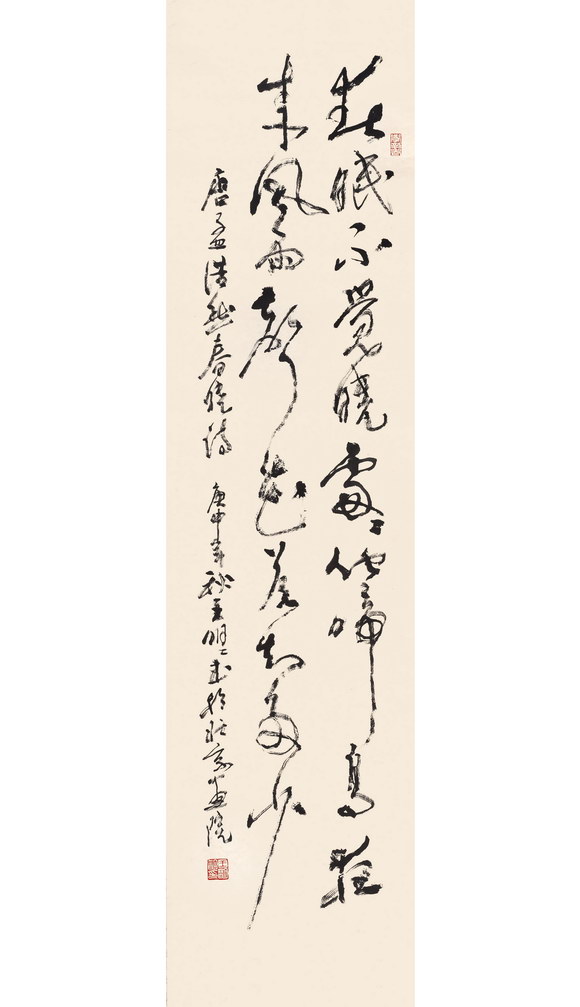 春眠不覺曉處〻聞啼鳥夜
來風雨聲花落知多少
唐孟浩然春曉詩 庚申年秋王明〻書於北京畫院